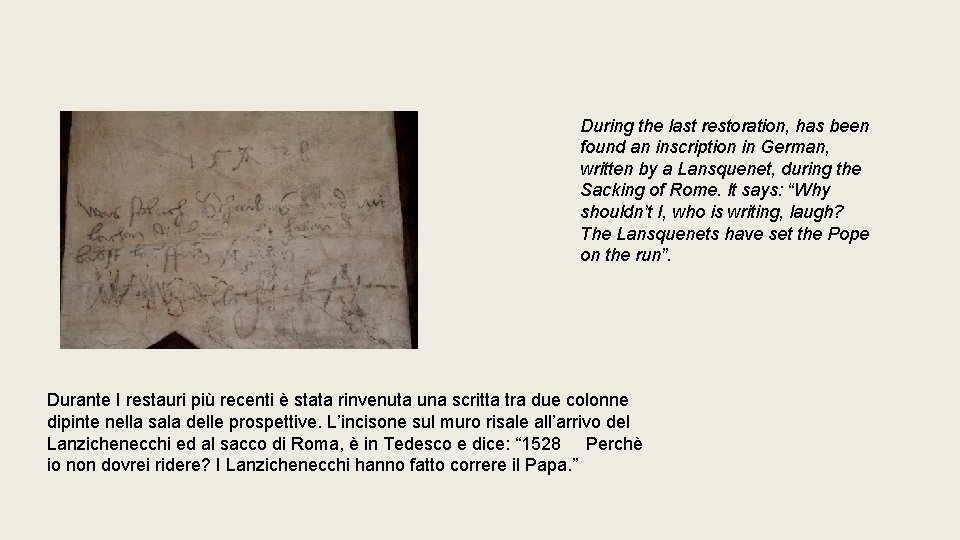 During the last restoration, has been
found an inscription in German,
written by a Lansquenet, during the
Sacking of Rome. It says: “Why
shouldn’t I, who is writing, laugh?
The Lansquenets have set the Pope
on the run”.
Durante I restauri più recenti è stata rinvenuta una scritta tra due colonne
dipinte nella sala delle prospettive. L’incisone sul muro risale all’arrivo del
Lanzichenecchi ed al sacco di Roma, è in Tedesco e dice: “ 1528 Perchè
io non dovrei ridere? I Lanzichenecchi hanno fatto correre il Papa. ”